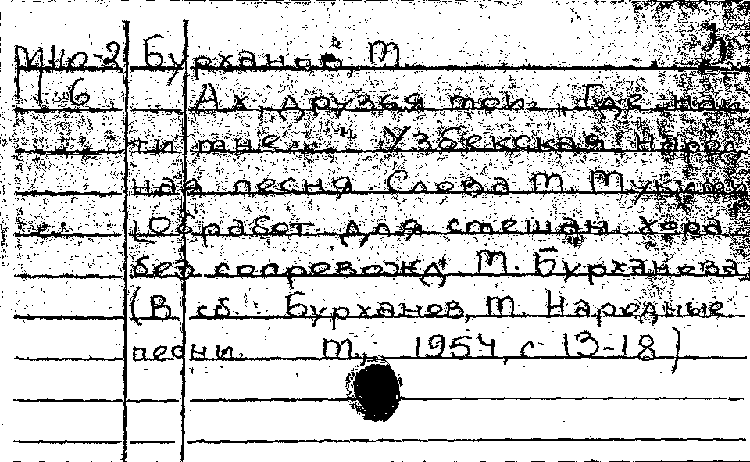 МНО-2 Бурханов, М.
6 Ах, друзья мои. Где най
ти мне..." Узбекская народ
ная песня. Слова М.
[Обработ. для смешан. хора
без сопровожд. М. Бурханова
(В сб. Бурханов, М. Народные
песни. М., 1954, с 13-18)